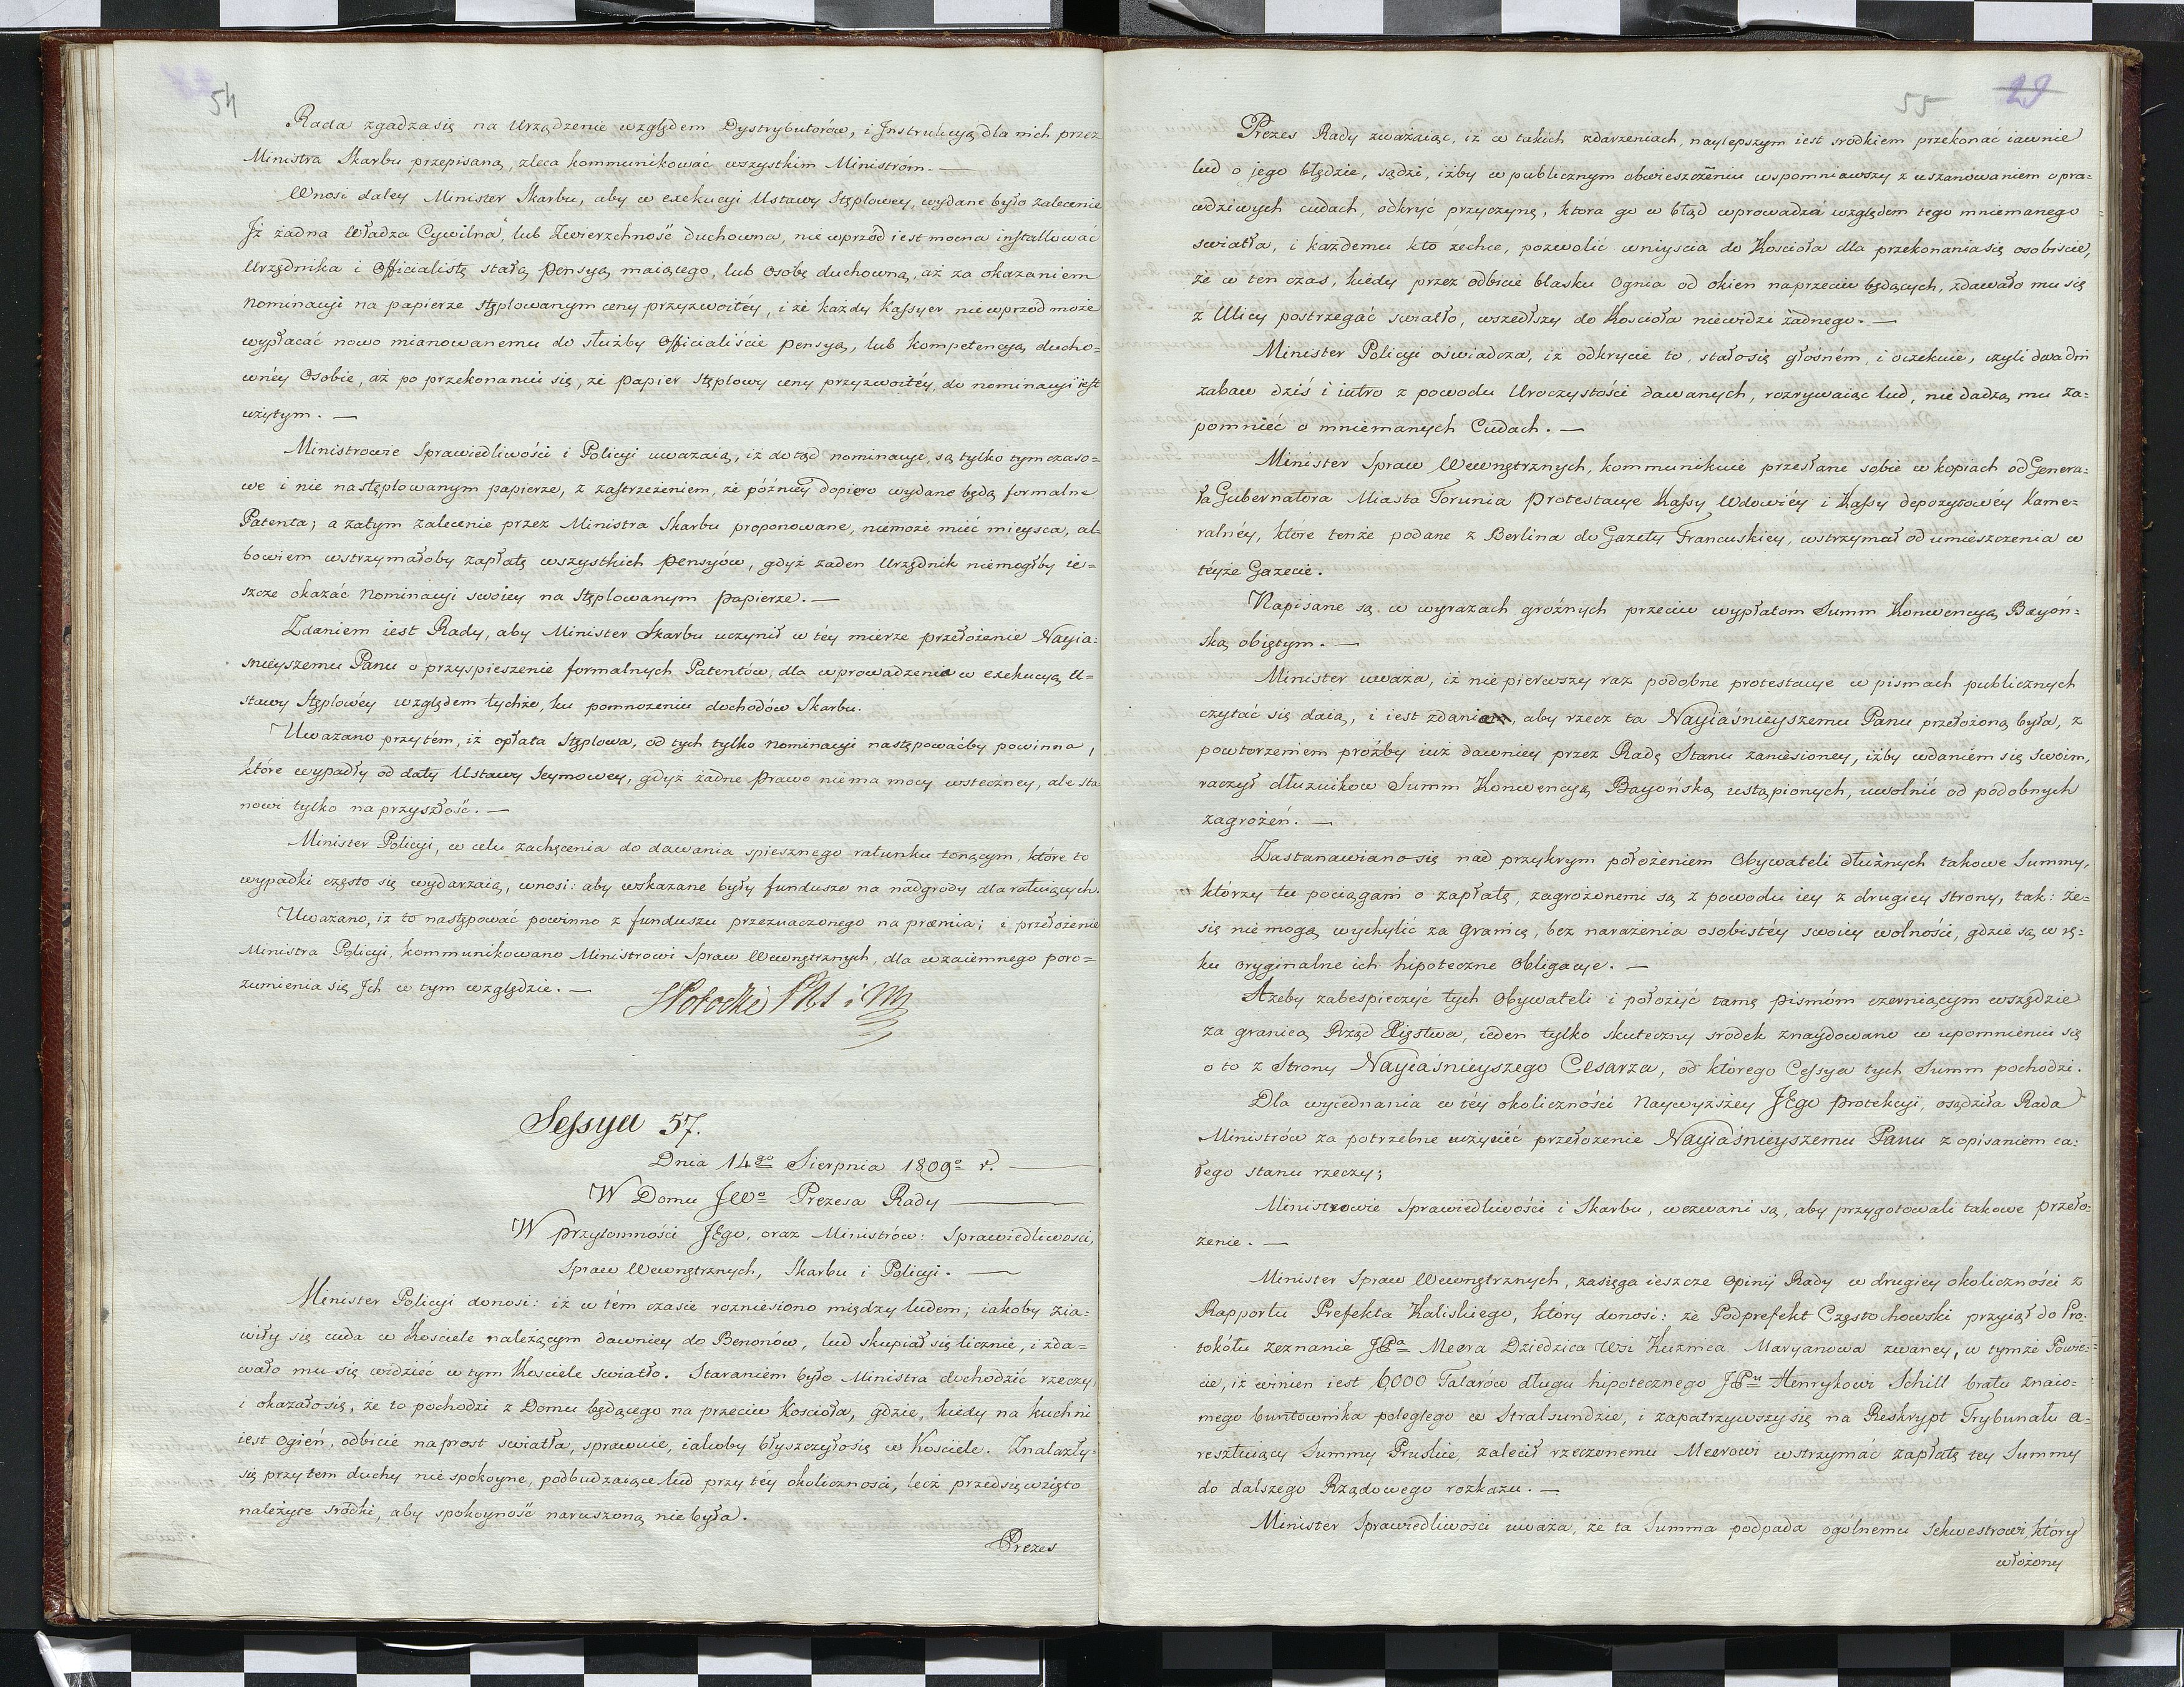 54
Rada zgadza się na Urządzenie względem Dystrybutorów, i Instrukcyą dla nich przez
Ministra Skarbu przepisaną, zleca kommunikować wszystkim Ministróm. —
Wnosi daley Minister Skarbu, aby w exekucyi Ustawy Stęplowey, wydane było zalecenie
Jż żadna Władza Cywilna, lub Zwierzchność duchowna, nie wprzód iest mocna installować
Urzędnika i Officialistę stałą pensyą maiącego, lub osobę duchowną, aż za okazaniem
Nominacyi na papierze stęplowanym ceny przyzwoitéy, i że każdy Kassyer nie wprzód może
wypłacać nowo mianowanemu do służby Officialiście pensyą, lub kompetencyą ducho=
wnéy Osobie, aż po przekonaniu się, że papier stęplowy ceny przyzwoitéy, do nominacyi iest
użytym. —
Ministrowie Sprawiedliwości i Policyi uważaią, iż dotąd nominacye, są tylko tymczaso=
we i nie na stęplowanym papierze, z zastrzeżeniem, że późniey dopiero wydane będą formalne
Patenta; a zatym zalecenie przez Ministra Skarbu proponowane, niemoże mieć mieysca, al=
bowiem wstrzymałoby zapłatę wszystkich pensyów, gdyż żaden Urzędnik niemogłby ie=
szcze okazać Nominacyi swoiey na stęplowanym papierze. —
Zdaniem iest Rady, aby Minister Skarbu uczynił w téy mierze przełożenie Nayia=
śnieyszemu Panu o przyspieszenie formalnych Patentów, dla wprowadzenia w exekucyą U=
stawy Stęplowéy względem tychże, ku pomnożeniu dochodów Skarbu.
Uważano przytém, iż opłata Stęplowa, od tych tylko Nominacyi następowaćby powinna,
które wypadły od daty Ustawy Seymowey, gdyż żadne prawo niema mocy wsteczney, ale sta
nowi tylko na przyszłość. —
Minister Policyi, w celu zachęcenia do dawania spiesznego ratunku tonącym, które to
wypadki często się wydarzaią, wnosi: aby wskazane były fundusze na nadgrody dla ratuiących.
Uważano, iż to następować powinno z funduszu przeznaczonego na præmia; i przełożenie
Ministra Policyi, kommunikowano Ministrowi Spraw Wewnętrznych, dla wzaiemnego poro=
zumienia się Jch w tym względzie. —
Sessya 57.
Dnia 14go Sierpnia 1809o r. —
W Domu JWo Prezesa Rady —
W przytomności JEgo, oraz Ministrów: Sprawiedliwości,
Spraw Wewnętrznych, Skarbu i Policyi. —
Minister Policyi donosi: iż w tém czasie rozniesiono między ludem; iakoby zia=
wiły się cuda w Kościele należącym dawniey do Benonów, lud skupiał się licznie, i zda=
wało mu się widzieć w tym Kościele swiatło. Staraniem było Ministra dochodzić rzeczy
i okazało się, że to pochodzi z Domu będącego na przeciw Kościoła, gdzie, kiedy na kuchni
iest ogień, odbicie naprost swiatła, sprawuie, iakoby błyszczyło się w Kościele. Znalazły=
się przytem duchy niespokoyne, podbudzaiące lud przy téy okoliczności, lecz przedsięwzięto
należyte srodki, aby spokoyność naruszoną nie była.
Prezes
55 29
Prezes Rady zważaiąc, iż w takich zdarzeniach, naylepszym iest srodkiem przekonać iawnie
lud o jego błędzie, sądzi, iżby w publicznym obwieszczeniu wspomniawszy z uszanowaniem o pra=
wdziwych cudach, odkryć przyczynę, ktora go w błąd wprowadza względem tego mniemanego
swiatła, i każdemu kto zechce, pozwolić wniyscia do Kościoła dla przekonania się osobiscie,
że w ten czas, kiedy przez odbicie blasku Ognia od okien naprzeciw będących, zdawało mu się
z Ulicy postrzegać swiatło, wszedłszy do Kościoła niewidzi żadnego. —
Minister Policyi oświadcza, iż odkrycie to, stało się głośném, i oczekuie, czyli dwa dni
zabaw dziś i iutro z powodu Uroczystości dawanych, rozrywaiąc lud, nie dadzą mu za=
pomnieć o mniemanych Cudach. —
Minister Spraw Wewnętrznych, kommunikuie przesłane sobie w kopiach od Genera=
ła Gubernatora Miasta Torunia protestacye Kassy Wdowiéy i Kassy depozytowéy Kame=
ralnéy, które tenże podane z Berlina do Gazety Francuskiey, wstrzymał od umieszczenia w
téyże Gazecie.
Napisane są w wyrazach groźnych przeciw wypłatom Summ Konwencyą Bayoń=
ską obiętym. —
Minister uważa, iż nie pierwszy raz podobne protestacye w pismach publicznych
czytać się daią, i iest zdania, aby rzecz ta Nayiaśnieyszemu Panu przełożoną była, z
powtorzeniem proźby iuż dawniey przez Radę Stanu zaniesioney, iżby wdaniem się swoim,
raczył dłużnikow Summ Konwencyą Bayońską ustąpionych, uwolnić od podobnych
zagrożeń. —
Zastanawiano się nad przykrym położeniem Obywateli dłużnych takowe Summy,
którzy tu pociągani o zapłatę, zagrożonemi są z powodu iey z drugiey strony, tak: że=
się nie mogą wychylić za granicę, bez narażenia osobistéy swoiey wolności, gdzie są w rę=
ku oryginalne ich hipoteczne Obligacye. —
Ażeby zabespieczyć tych Obywateli i położyć tamę pismóm czerniącym wszędzie
za granicą Rząd Xięstwa, ieden tylko skuteczny srodek znaydowano w upomnieniu się
o to z Strony Nayiaśnieyszego Cesarza, od którego Cessya tych Summ pochodzi.
Dla wyiednania w téy okoliczności Naywyższey JEgo protekcyi, osądziła Rada
Ministrów za potrzebne uczynić przełożenie Nayiaśnieyszemu Panu z opisaniem ca=
łego stanu rzeczy;
Ministrowie Sprawiedliwości i Skarbu, wezwani są, aby przygotowali takowe przeło=
żenie. —
Minister Spraw Wewnętrznych, zasięga ieszcze opinij Rady w drugiey okoliczności z
Rapportu Prefekta Kaliskiego, który donosi: że Podprefekt Częstochowski przyiął do Pro=
tokółu zeznanie JPa Meera Dziedzica Wsi Kuznica Maryanowa zwaney, w tymże Powie=
cie, iż winien iest 6,000 Talarów długu hipotecznego JPu Henrykowi Schill bratu znaio=
mego buntownika poległego w Stralsundzie, i zapatrzywszy się na Reskrypt Trybunału a=
resztuiący Summy Pruskie, zalecił rzeczonemu Meerowi wstrzymać zapłatę tey Summy
do dalszego Rządowego rozkazu. —
Minister Sprawiedliwości uważa, że ta Summa podpada ogólnemu sekwestrowi, który
włożony